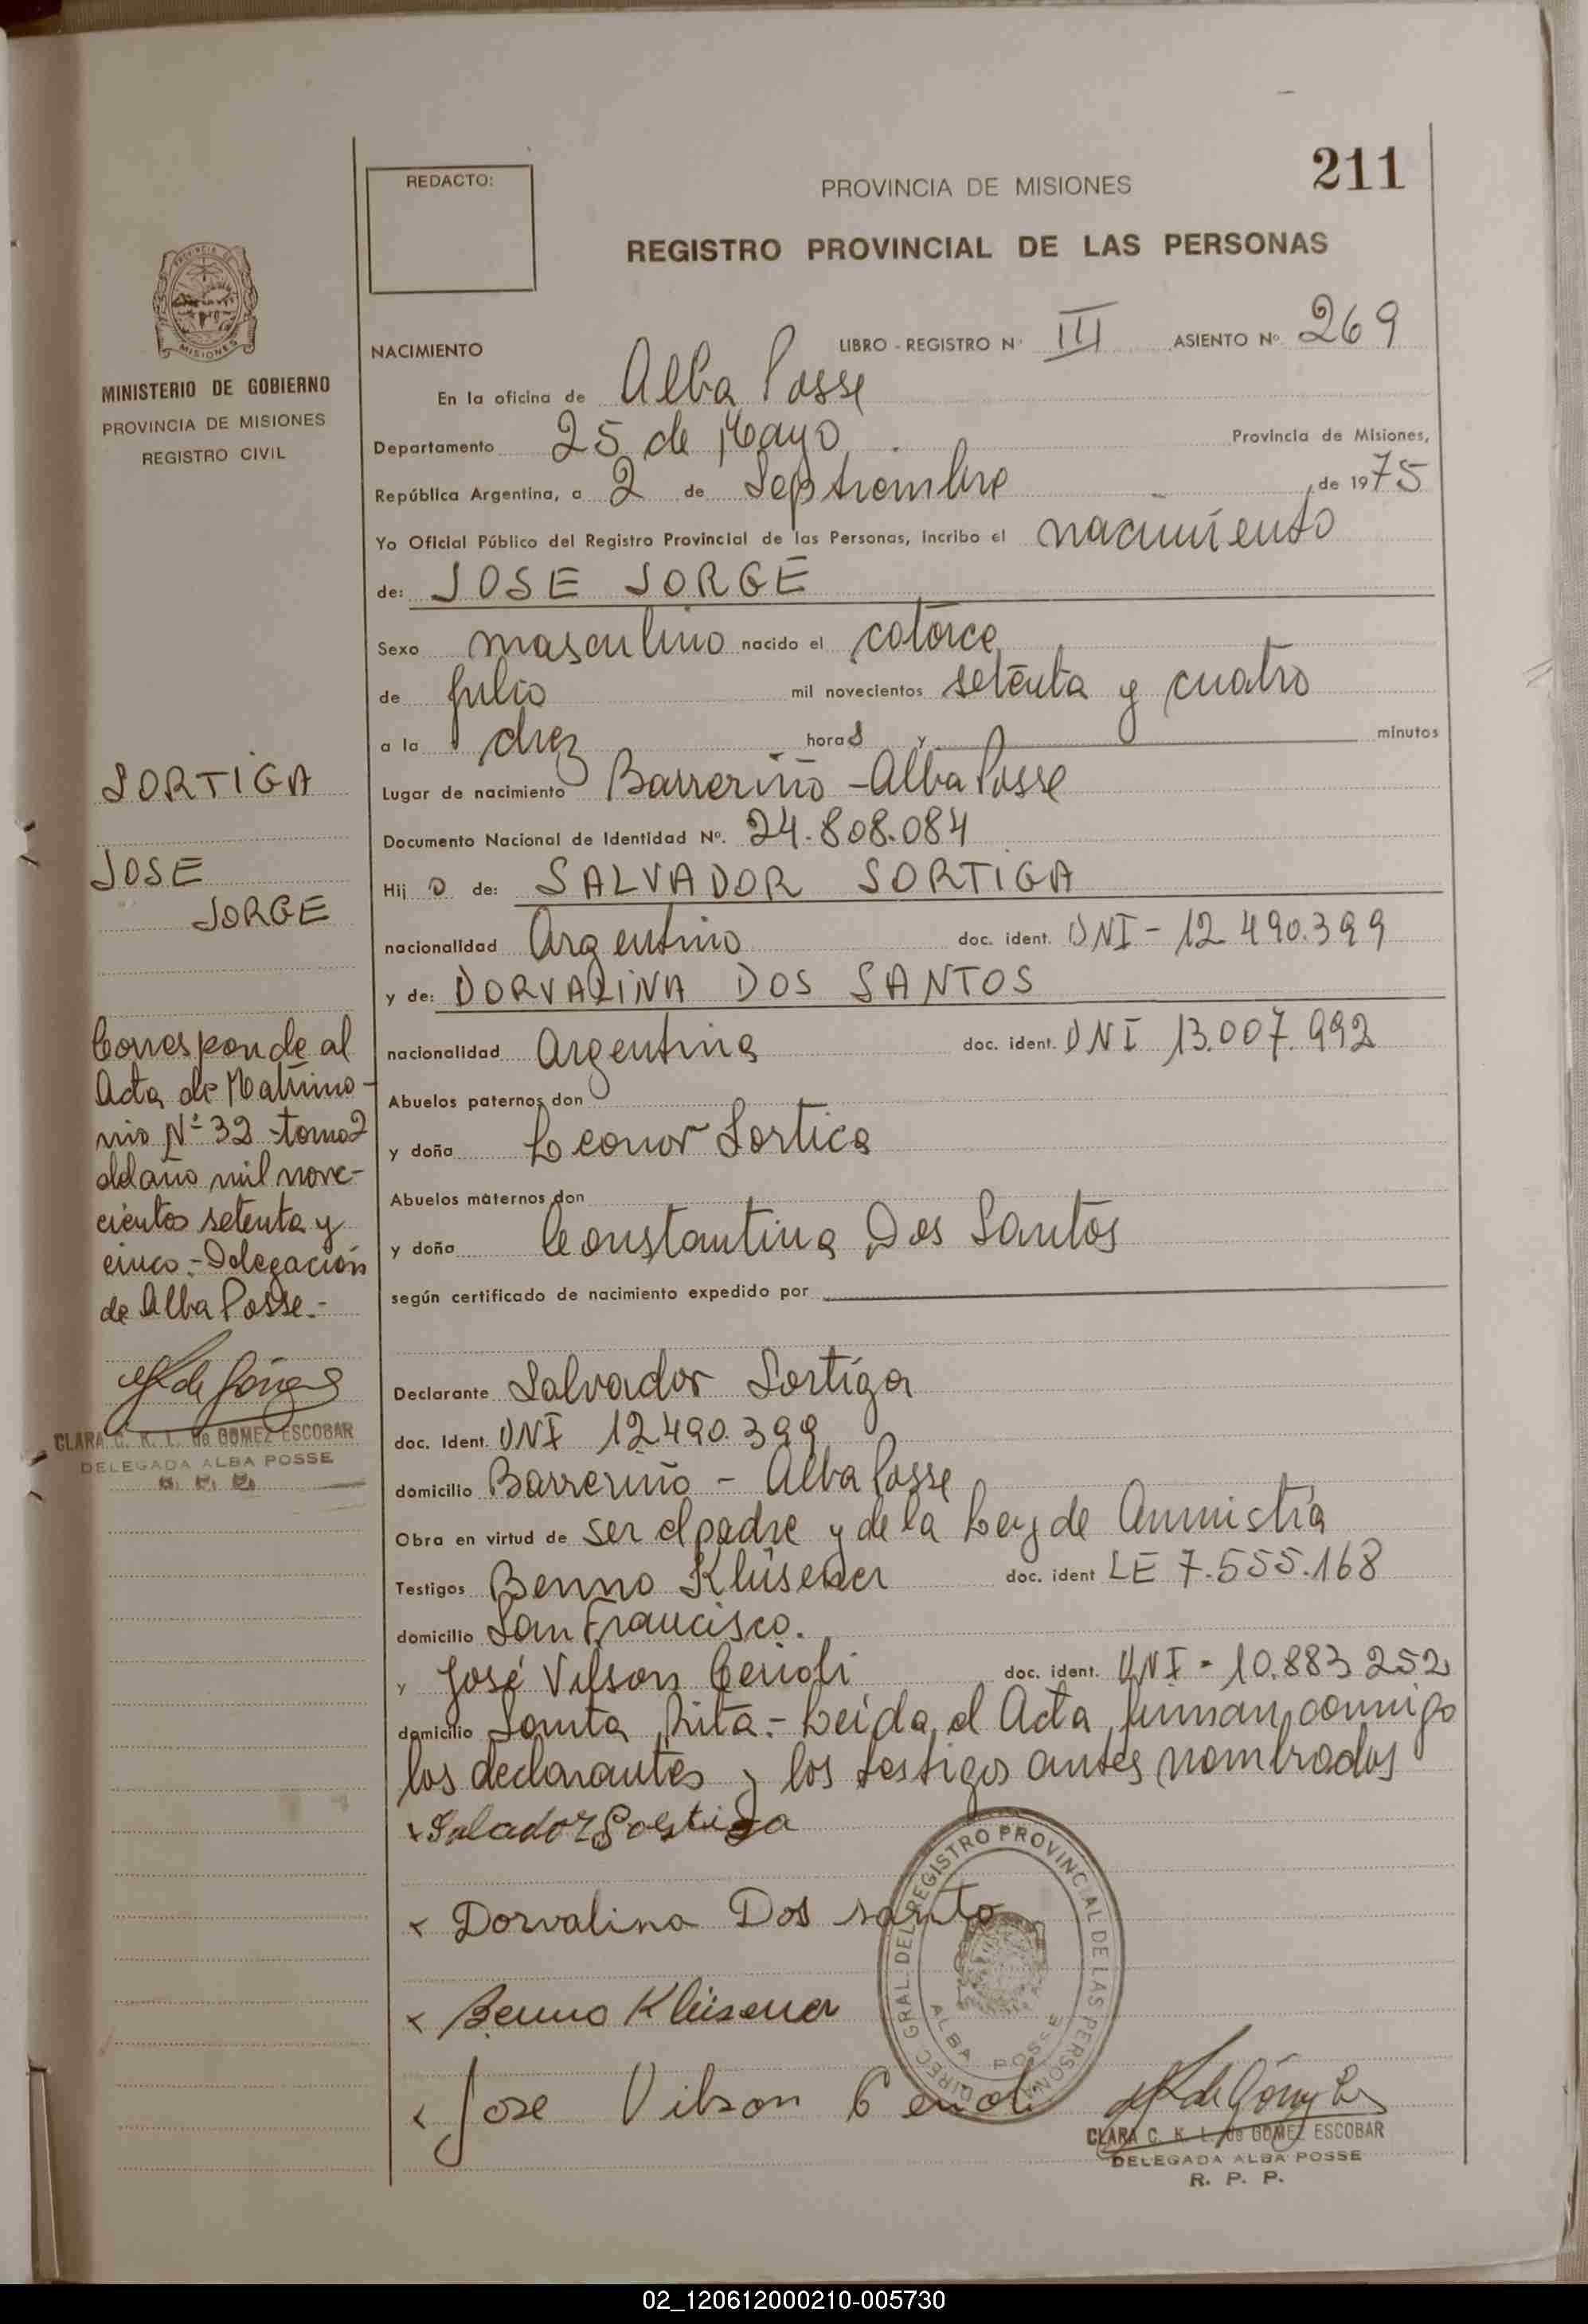 REDACTO:
PROVINCIA DE MISIONES
211
REGISTRO PROVINCIAL DE LAS PERSONAS
MISIONES
MINISTERIO DE GOBIERNO
PROVINCIA DE MISIONES
REGISTRO CIVIL
NACIMIENTO LIBRO - REGISTRO Nº III ASIENTO Nº 269
En la oficina de Alba Posse
Departamento 25 de Mayo Provincia de Misiones,
República Argentina, a 2 de Septiembre de 1975
Yo Oficial Público del Registro Provincial de las Personas, incribo el nacimiento
de: JOSE JORGE
Sexo masculino nacido el catorce
de julio mil novecientos setenta y cuatro
a la diez horas y minutos
Lugar de nacimiento Barreriño - Alba Posse
Documento Nacional de Identidad Nº. 24.808.084
Hij o de: SALVADOR SORTIGA
nacionalidad Argentino doc. ident. DNI - 12.490.399
y de: DORVALINA DOS SANTOS
nacionalidad Argentina doc. ident. DNI 13.007.992
Abuelos paternos don
y doña Leonor Sortica
Abuelos maternos don
y doña Constantina Dos Santos
según certificado de nacimiento expedido por
Declarante Salvador Sortiga
doc. Ident. DNI 12.490.399
domicilio Barreriño - Alba Posse
Obra en virtud de ser el padre y de la Ley de Amnistía
Testigos Benno Klüsener doc. ident LE 7.555.168
domicilio San Francisco.
y José Vilson doc. ident. DNI - 10.883.252
domicilio Santa Rita.- Leída el Acta, firman conmigo
los declarantes y los testigos antes nombrados
x Salador Sortiga
x Dorvalina Dos santo
x Benno Klüsener
x Jose Vilson
SORTIGA
JOSE
JORGE
Corresponde al
Acta de Matrimo-
nio Nº 32 - tomo 2
del año mil nove-
cientos setenta y
cinco.- Delegación
de Alba Posse.-
CLARA C. K. L. de GOMEZ ESCOBAR
DELEGADA ALBA POSSE
R. P. P.
DIREC. GRAL. DEL REGISTRO PROVINCIAL DE LAS PERSONAS
ALBA POSSE
CLARA C. K. L. de GOMEZ ESCOBAR
DELEGADA ALBA POSSE
R. P. P.
02_120612000210-005730